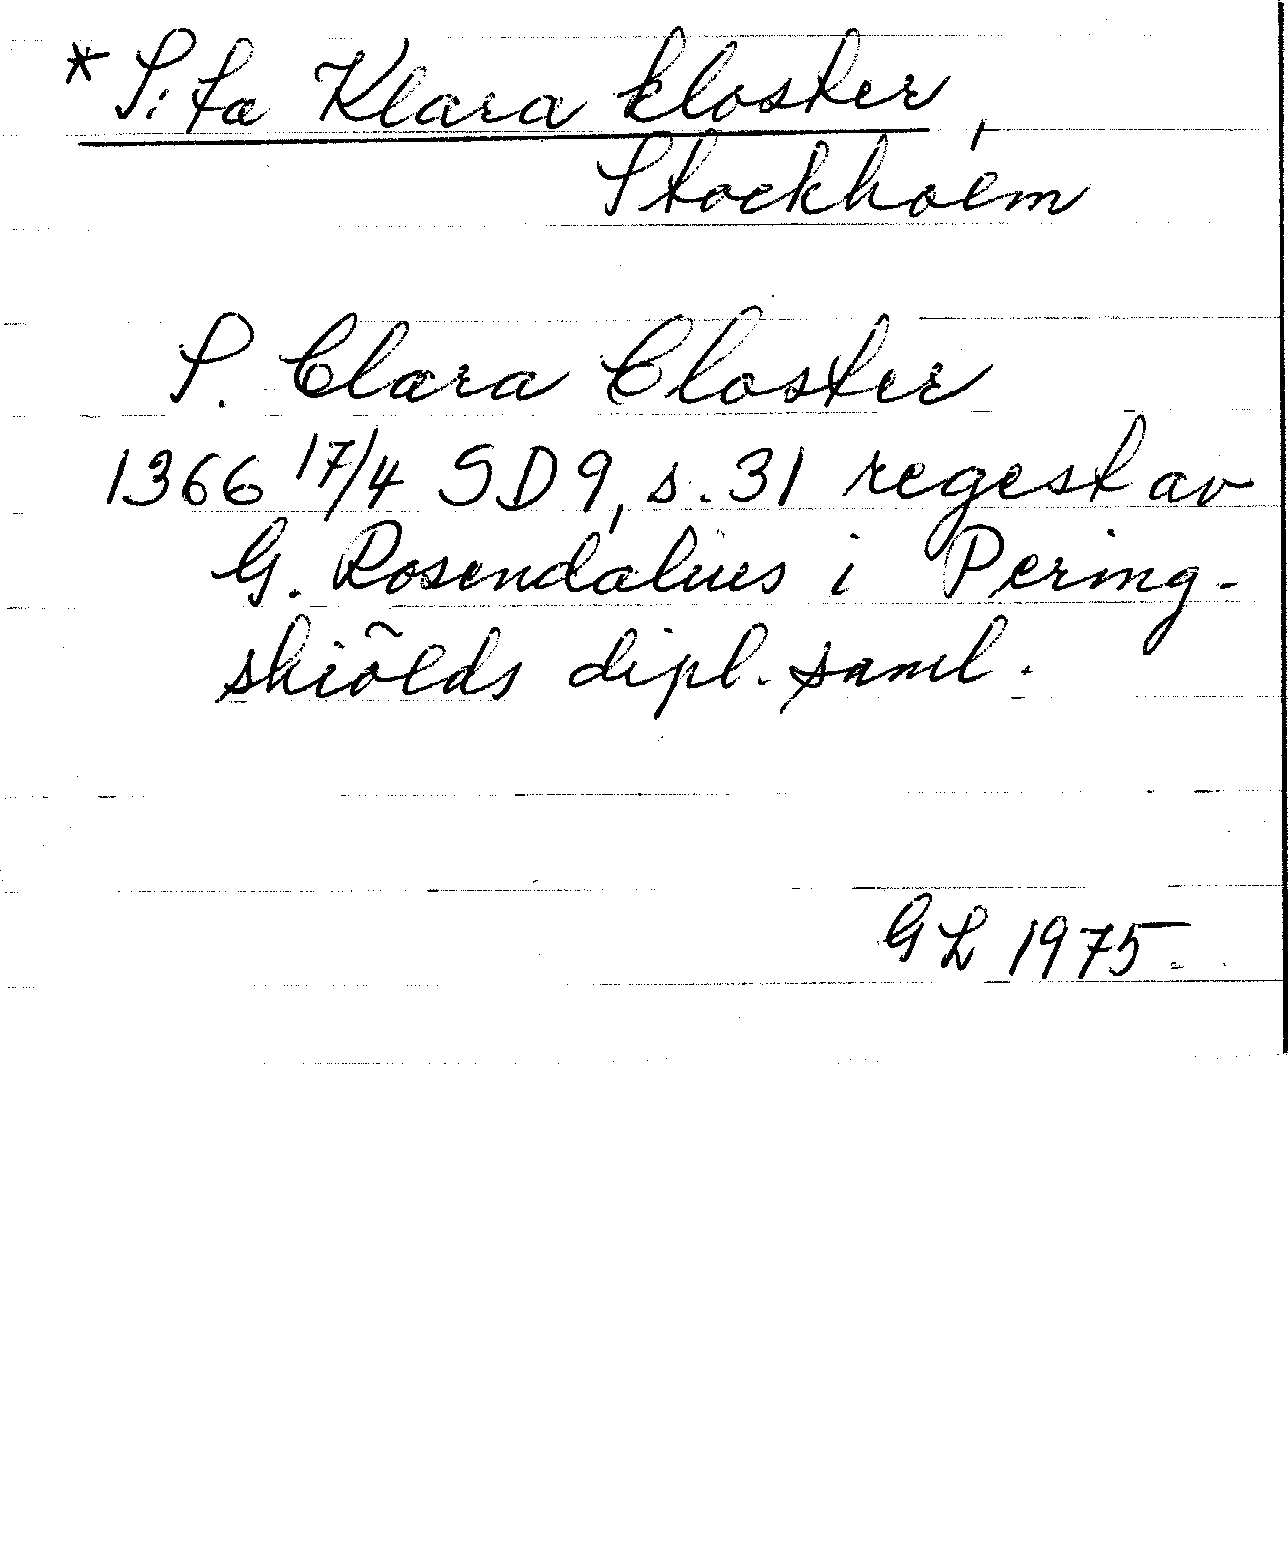 *S:ta Klara kloster,
Stockholm
S. Clara Closter
1366 17/4 SD 9, s. 31 regest av
G. Rosendalius i Pering-
skiölds dipl. saml.
GL 1975.